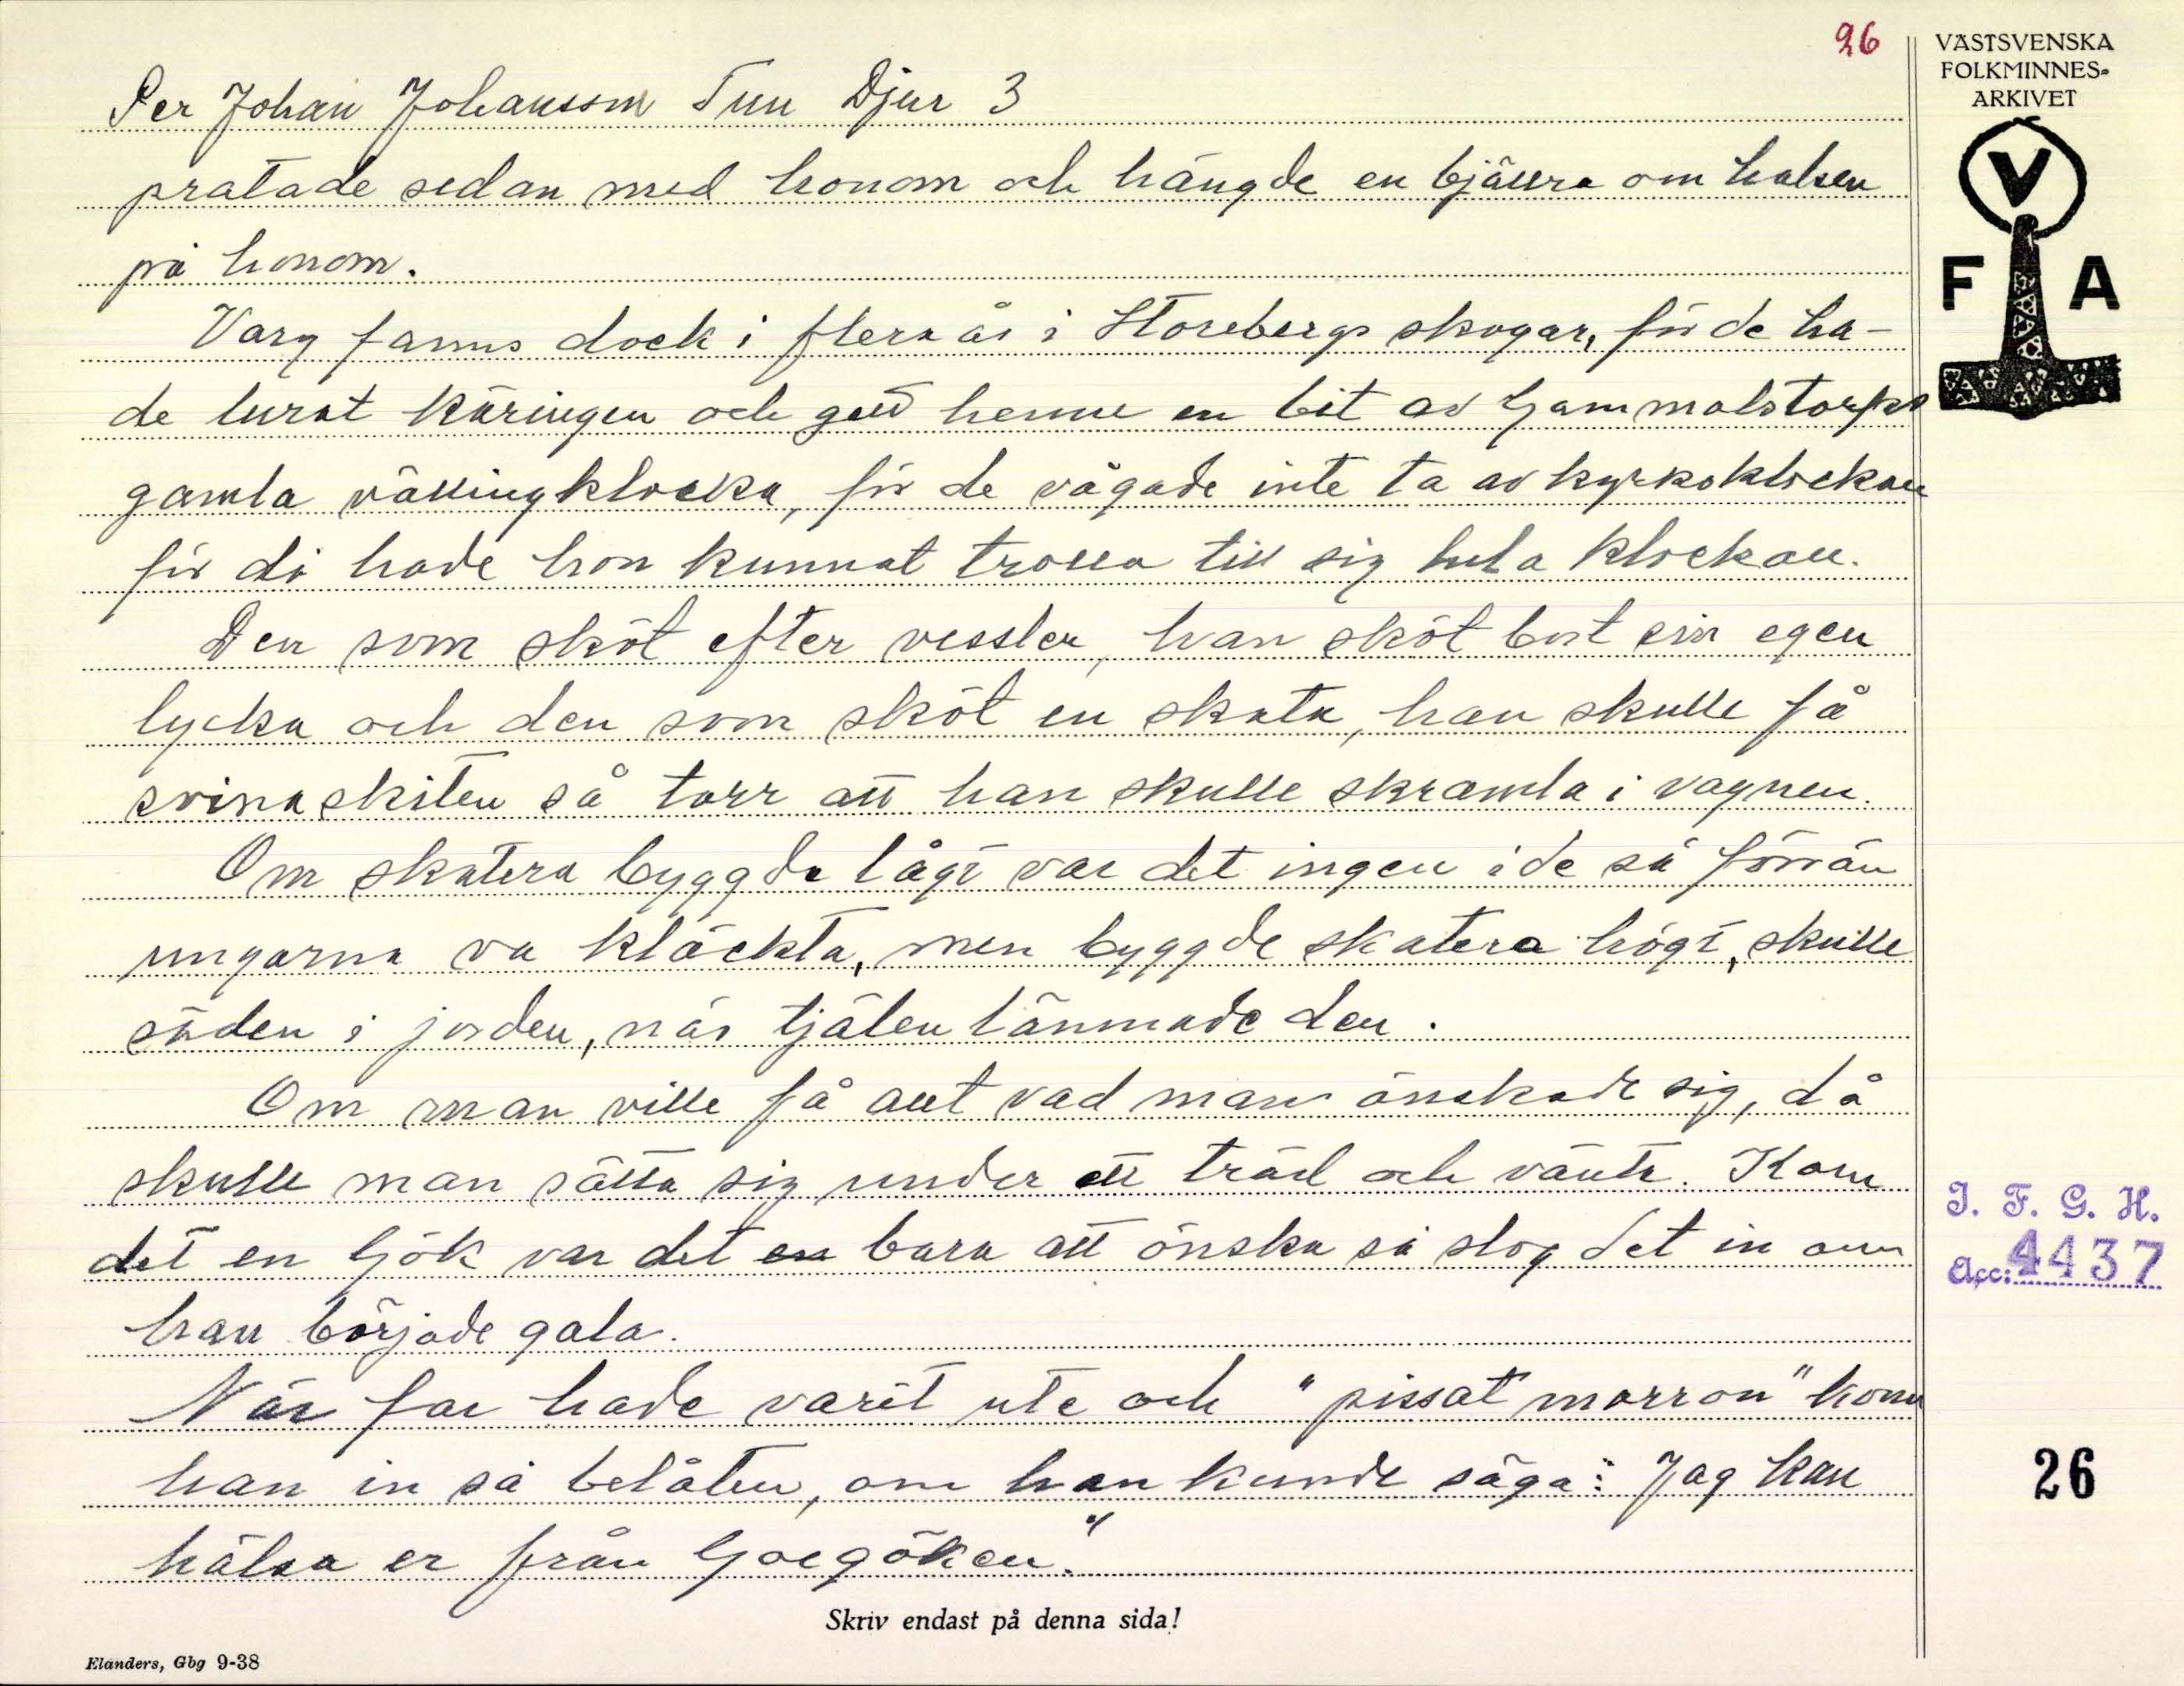 26
VÄSTSVENSKA
FOLKMINNES-
ARKIVET
V
F A
Per Johan Johansson Tun Djur 3
pratade sedan med honom och hängde en bjällra om halsen
på honom.
Varg fanns dock i flera år i Storebergs skogar, för de ha-
de lurat käringen och gett henne en bit av Gammalstorps
gamla vällingklocka, för de vågade inte ta av kyrkoklockan
för då hade hon kunnat trolla till sig hela klockan.
Den som sköt efter vessler, han sköt bort sin egen
lycka och den som sköt en skata, han skulle få
svinaskiten så torr att han skulle skramla i vagnen.
Om skatera byggde lågt var det ingen ide så förrän
ungarna va kläckta, men byggde skatera högt, skulle
säden i jorden, när tjälen lämnade den.
Om man ville få allt vad man önskade sig, då
skulle man sätta sig under ett träd och vänta. Kom
det en Gjök var det en bara att önska så slog det in om
han började gala.
När far hade varit ute och "pissat morron" kom
han in så belåten, om han kunde säga: Jag kan
hälsa er från Goegöken."
I. F. G. H.
Acc: 4437
26
Skriv endast på denna sida!
Elanders, Gbg 9-38